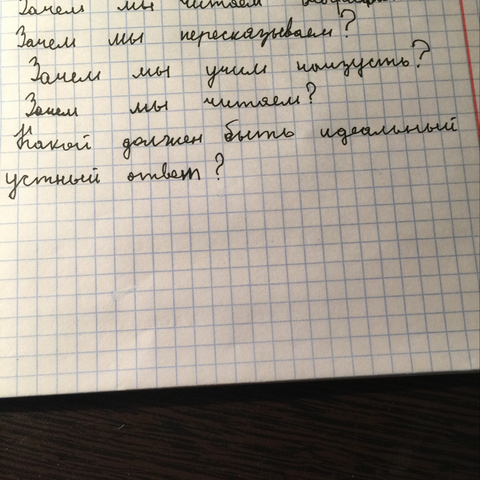 Зачем мы читаем
Зачем мы пересказываем?
Зачем мы учим наизусть?
Зачем мы читаем?
Какой должен быть идеальный
устный ответ?